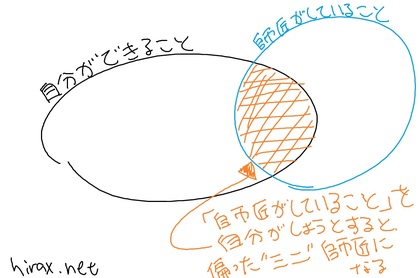 自分ができること
師匠がしていること
「師匠がしていること」を
自分がしようとすると
偏った“ミニ”師匠に
なる
hirax.net